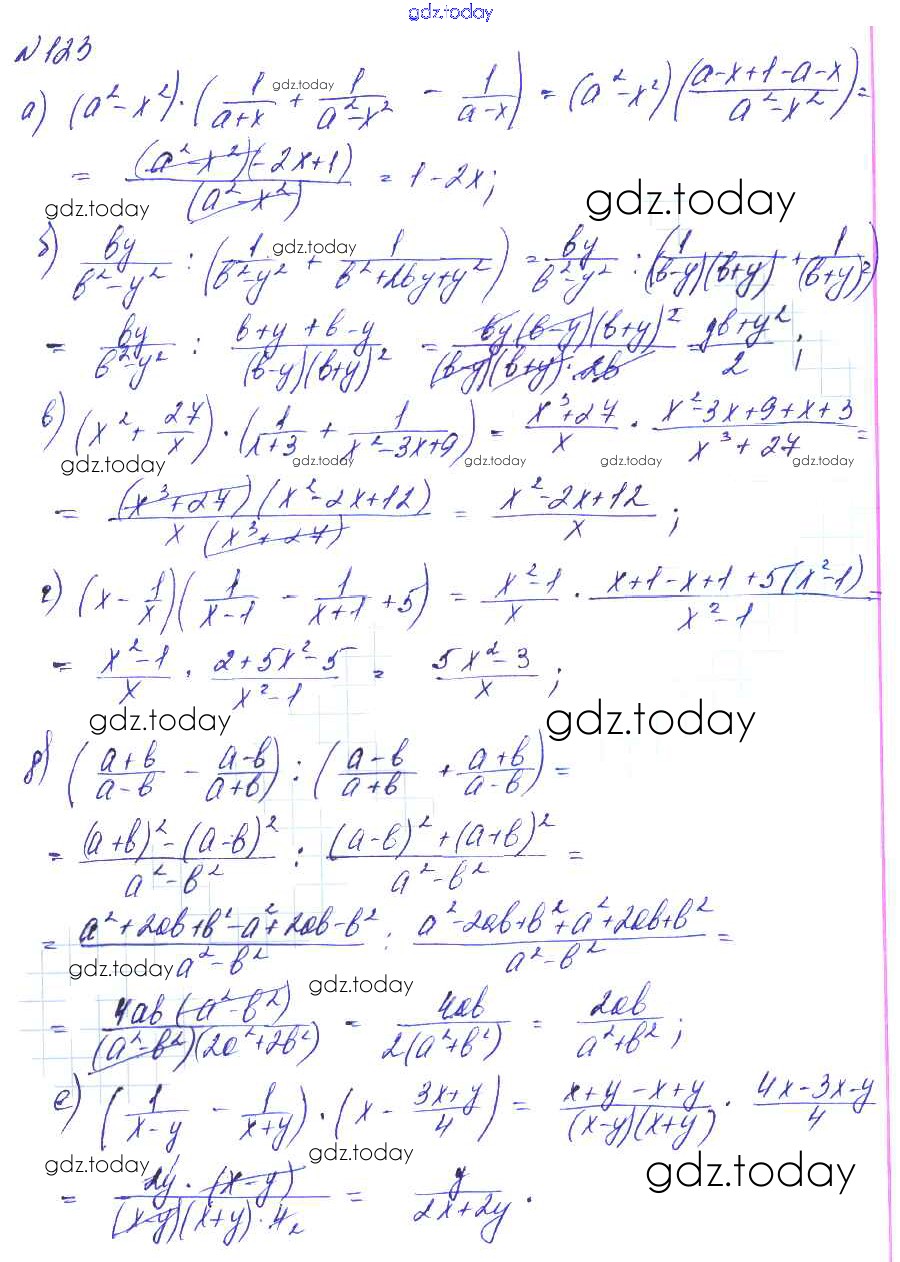 gdz.today
№123
а) (a² - x²)·(1/(a+x) + 1/(a²-x²) - 1/(a-x)) = (a²-x²)((a-x+1-a-x)/(a²-x²)) =
= (a²-x²)(-2x+1)/(a²-x²) = 1-2x;
gdz.today
gdz.today
gdz.today
б) by/(b²-y²) : (1/(b²-y²) + 1/(b²+2by+y²)) = by/(b²-y²) : (1/((b-y)(b+y)) + 1/(b+y)²)
gdz.today
= by/(b²-y²) : (b+y+b-y)/((b-y)(b+y)²) = by(b-y)(b+y)²/((b-y)(b+y)·2b) = yb+y²/2;
в) (x² + 27/x)·(1/(x+3) + 1/(x²-3x+9)) = (x³+27)/x · (x²-3x+9+x+3)/(x³+27) =
gdz.today gdz.today gdz.today gdz.today gdz.today
= (x³+27)(x²-2x+12)/(x(x³+27)) = (x²-2x+12)/x;
г) (x - 1/x)(1/(x-1) - 1/(x+1) + 5) = (x²-1)/x · (x+1-x+1+5(x²-1))/(x²-1) =
= (x²-1)/x · (2+5x²-5)/(x²-1) = (5x²-3)/x;
gdz.today gdz.today
д) ((a+b)/(a-b) - (a-b)/(a+b)) : ((a-b)/(a+b) + (a+b)/(a-b)) =
= ((a+b)²-(a-b)²)/(a²-b²) : ((a-b)²+(a+b)²)/(a²-b²) =
= (a²+2ab+b²-a²+2ab-b²)/(a²-b²) : (a²-2ab+b²+a²+2ab+b²)/(a²-b²) =
gdz.today gdz.today
= 4ab(a²-b²)/((a²-b²)(2a²+2b²)) = 4ab/(2(a²+b²)) = 2ab/(a²+b²);
е) (1/(x-y) - 1/(x+y))·(x - (3x+y)/4) = (x+y-x+y)/((x-y)(x+y)) · (4x-3x-y)/4
gdz.today gdz.today gdz.today
= 2y·(x-y)/((x-y)(x+y)·4₂) = y/(2x+2y).